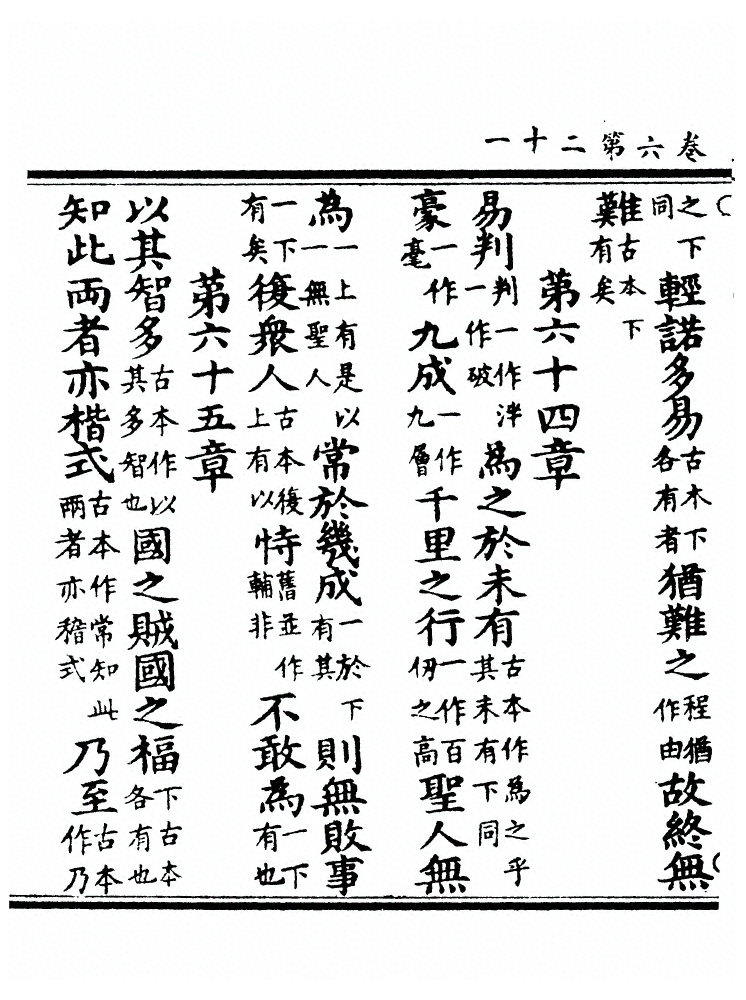 卷六第二十一
之下同輕諾多易古木下各有者猶難之程猶作由故終無
難古本下有矣
第六十四章
易判判一作泮一作破為之於未有古本作為之乎其未有下同
豪一作毫九成一作九層千里之行一作百仞之高聖人無
為一上有是以一無聖人常於幾成一於下有其則無敗事
一下有矣復衆人古本復上有以恃舊並作輔非不敢為一下有也
第六十五章
以其智多古本作以其多智也國之賊國之福下古本各有也
知此兩者亦楷式古本作常知此兩者亦稽式乃至古本作乃